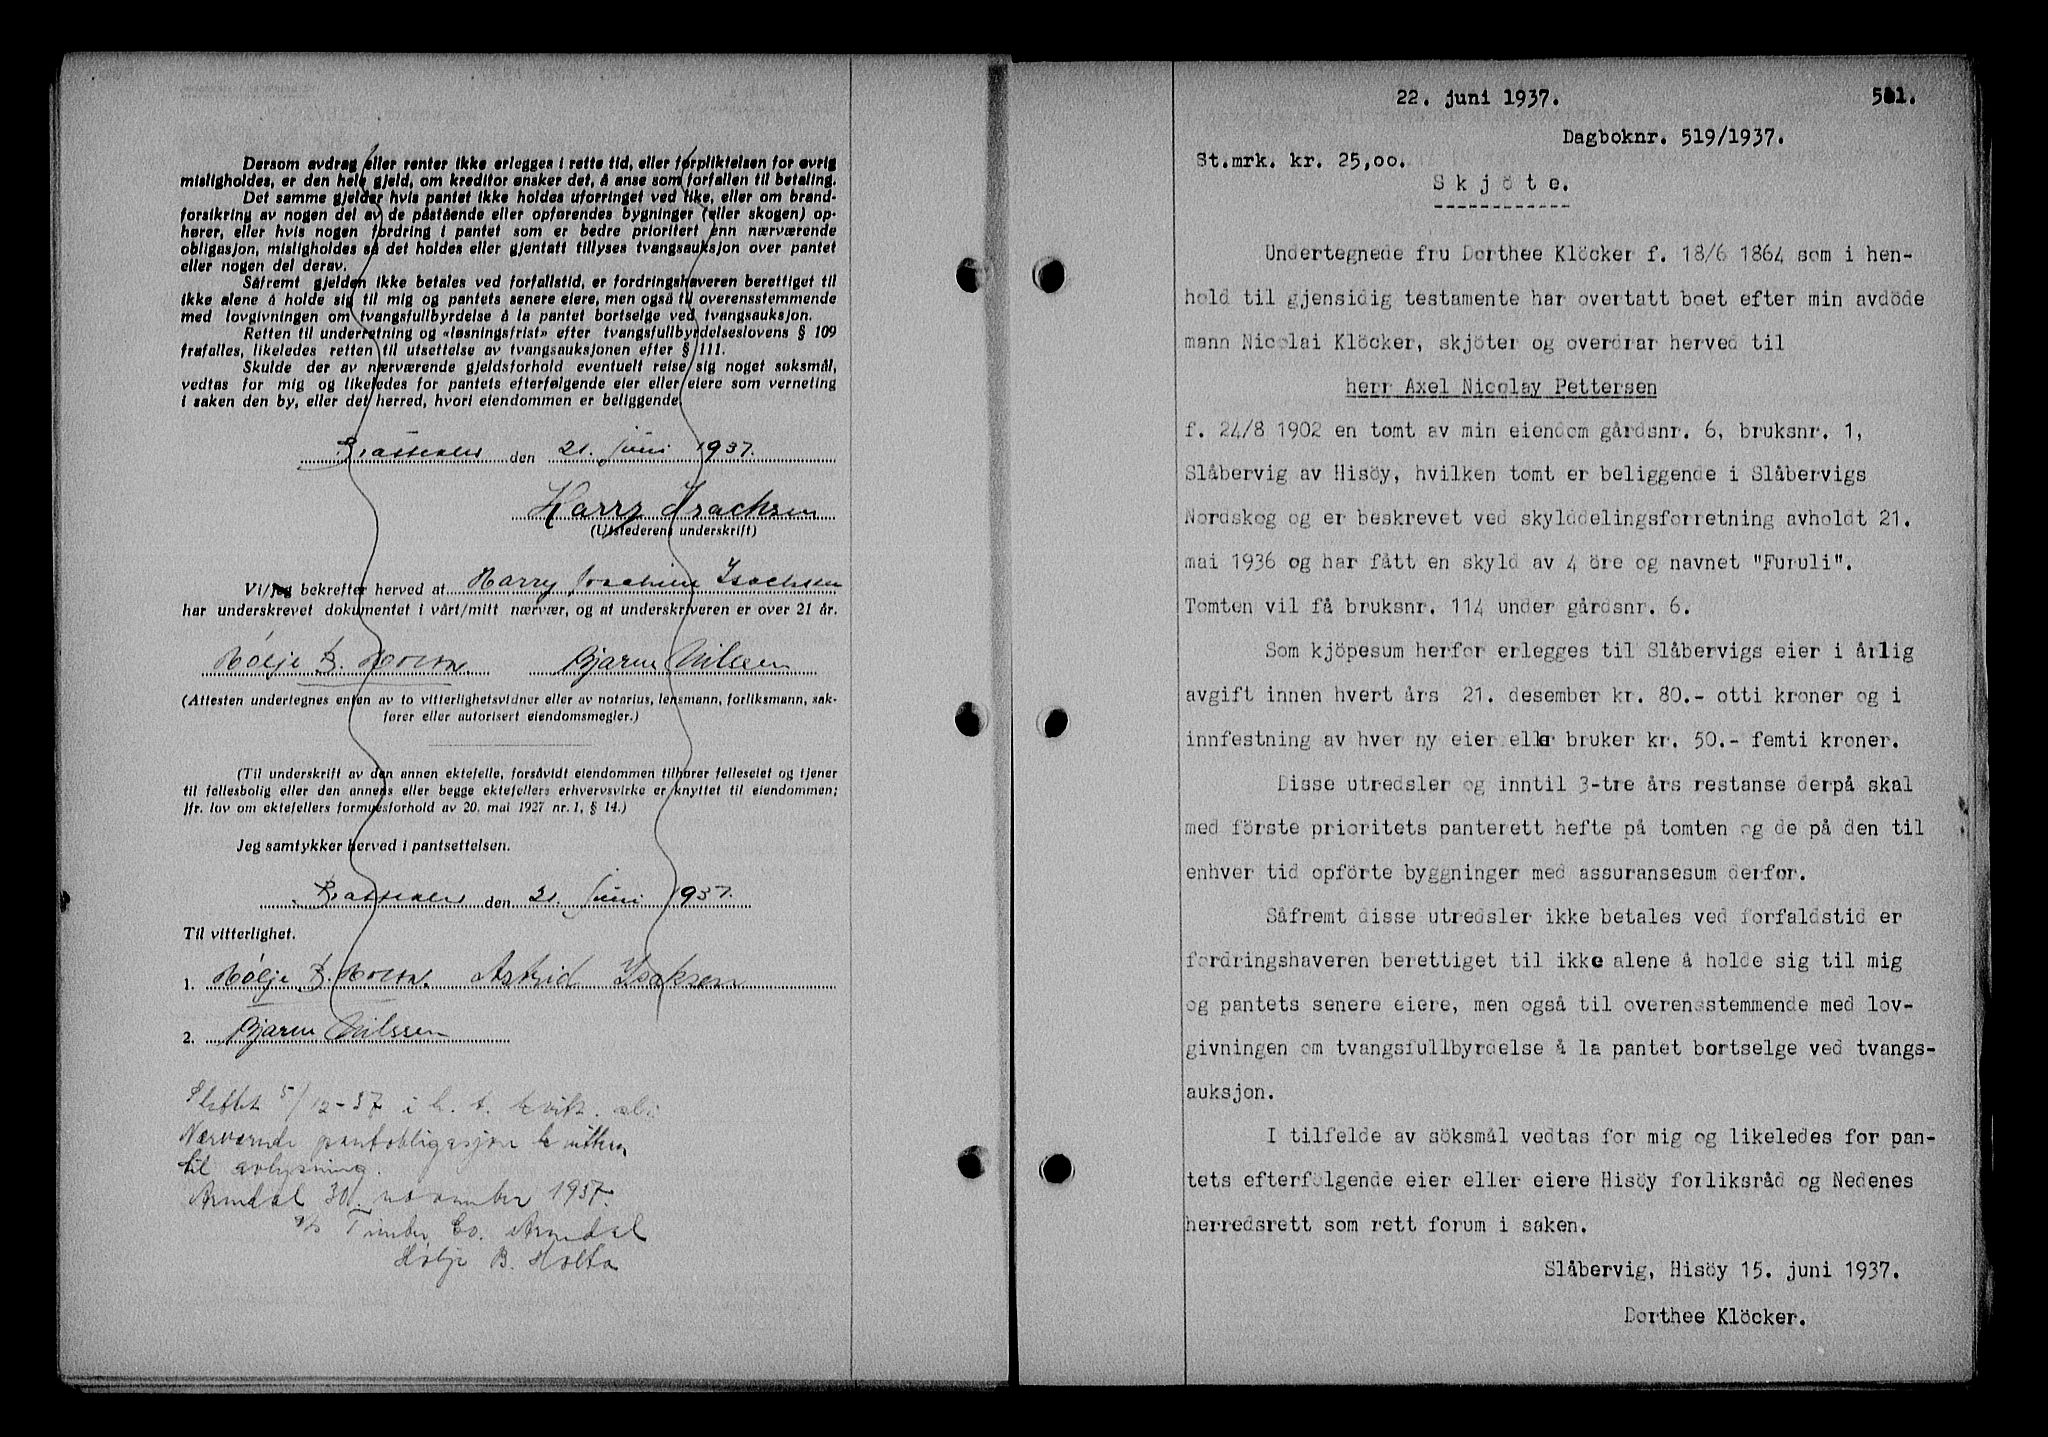 Dersom avdrag eller renter ikke erlegges i rette tid, eller forpliktelsen for øvrig
misligholdes, er den hele gjeld, om kreditor ønsker det, å anse som forfallen til betaling.
Det samme gjelder hvis pantet ikke holdes uforringet ved like, eller om brand-
forsikring av nogen del av de påstående eller opførendes bygninger (eller skogen) op-
hører, eller hvis nogen fordring i pantet som er bedre prioritert enn nærværende
obligasjon, misligholdes så det holdes eller gjentatt tillyses tvangsauksjon over pantet
eller nogen del derav.
Såfremt gjelden ikke betales ved forfallstid, er fordringshaveren berettiget til
ikke alene å holde sig til mig og pantets senere eiere, men også til overensstemmende
med lovgivningen om tvangsfullbyrdelse å la pantet bortselge ved tvangsauksjon.
Retten til underretning og «løsningsfrist» efter tvangsfullbyrdelseslovens § 109
frafalles, likeledes retten til utsettelse av tvangsauksjonen efter § 111.
Skulde der av nærværende gjeldsforhold eventuelt reise sig noget søksmål,
vedtas for mig og likeledes for pantets efterfølgende eier eller eiere som verneting
i saken den by, eller det herred, hvori eiendommen er beliggende.
den 21. juni 1937.
Harry Isachsen
(Utstederens underskrift)
Vi/jeg bekrefter herved at Harry Joachim Isachsen
har underskrevet dokumentet i vårt/mitt nærvær, og at underskriveren er over 21 år.
Hølje B. Holta. Bjarne Nilssen
(Attesten undertegnes enten av to vitterlighetsvidner eller av notarius, lensmann, forliksmann, sak-
fører eller autorisert eiendomsmegler.)
(Til underskrift av den annen ektefelle, forsåvidt eiendommen tilhører felleseiet og tjener
til fellesbolig eller den annens eller begge ektefellers erhvervsvirke er knyttet til eiendommen;
jfr. lov om ektefellers formuesforhold av 20. mai 1927 nr. 1, § 14.)
Jeg samtykker herved i pantsettelsen.
den 21. juni 1937.
Til vitterlighet.
1. Hølje B. Holta. Astrid Isaksen
2. Bjarne Nilssen
Slettet 5/12-37 i h. t. kvitt.
Nærværende pantobligasjon
til avlysning.
Arendal 30. november 1937.
Timber Co. Arendal
Hølje B. Holta
22. juni 1937. 501.
Dagboknr. 519/1937.
St.mrk. kr. 25,00.
Skjöte.
Undertegnede fru Dorthee Klöcker f. 18/6 1864 som i hen-
hold til gjensidig testamente har overtatt boet efter min avdöde
mann Nicolai Klöcker, skjöter og overdrar herved til
herr Axel Nicolay Pettersen
f. 24/8 1902 en tomt av min eiendom gårdsnr. 6, bruksnr. 1,
Slåbervig av Hisöy, hvilken tomt er beliggende i Slåbervigs
Nordskog og er beskrevet ved skylddelingsforretning avholdt 21.
mai 1936 og har fått en skyld av 4 öre og navnet "Furuli".
Tomten vil få bruksnr. 114 under gårdsnr. 6.
Som kjöpesum herfor erlegges til Slåbervigs eier i årlig
avgift innen hvert års 21. desember kr. 80.- otti kroner og i
innfestning av hver ny eier eller bruker kr. 50.- femti kroner.
Disse utredsler og inntil 3-tre års restanse derpå skal
med förste prioritets panterett hefte på tomten og de på den til
enhver tid opförte byggninger med assuransesum derfor.
Såfremt disse utredsler ikke betales ved forfaldstid er
fordringshaveren berettiget til ikke alene å holde sig til mig
og pantets senere eiere, men også til overensstemmende med lov-
givningen om tvangsfullbyrdelse å la pantet bortselge ved tvangs-
auksjon.
I tilfelde av söksmål vedtas for mig og likeledes for pan-
tets efterfölgende eier eller eiere Hisöy forliksråd og Nedenes
herredsrett som rett forum i saken.
Slåbervig, Hisöy 15. juni 1937.
Dorthee Klöcker.